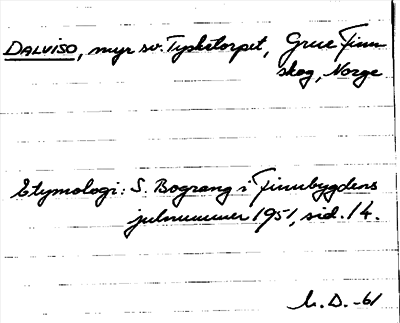 DALVISO, myr sv. Tysketorpet, Grue Finn
skog, Norge
Etymologi: S. Bograng i Finnbygdens
julnummer 1951, sid. 14.
M. D. -61